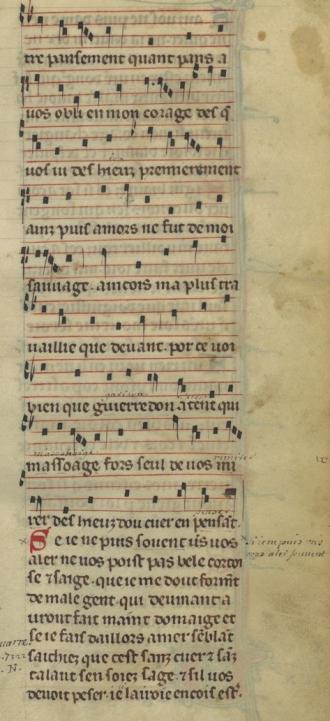 tre pansement quant pans a
uos obli en mon corage des q̃
uos ui des hieuz premierement
ainz puis amors ne fut de moi
sauuage . aincois ma plus tra
uaillie que deuant . por ce uoi
bien que guierredon atent qui
massoage fors seul de uos mi
rer des hieuz dou cuer en pensāt .
Se ie ne puis souent uīs uos
aler ne uos poist pas bele cortoi
se ⁊ saige . que ie me dout formt̃
de male gent . qui deuinant a
uront fait maint domaige et
se ie fais daillors amer sēblāt
saichiez que cest sanz cuer ⁊ sāz
talant sen soiez sage . ⁊ sil uos
deuoit peser . ie lairoie encois